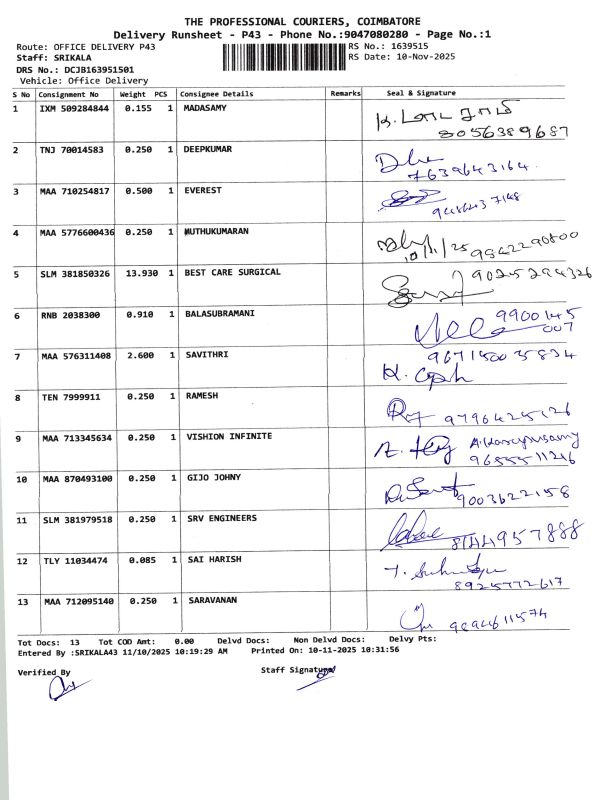 THE PROFESSIONAL COURIERS, COIMBATORE
Delivery Runsheet - P43 - Phone No.:9047080280 - Page No.:1
Route: OFFICE DELIVERY P43 RS No.: 1639515
Staff: SRIKALA RS Date: 10-Nov-2025
DRS No.: DCJB163951501
Vehicle: Office Delivery
S No Consignment No Weight PCS Consignee Details Remarks Seal & Signature
1 IXM 509284844 0.155 1 MADASAMY
8056389687
2 TNJ 70014583 0.250 1 DEEPKUMAR
7639643164
3 MAA 710254817 0.500 1 EVEREST
4 MAA 5776600436 0.250 1 MUTHUKUMARAN
10/11/25 9842290800
5 SLM 381850326 13.930 1 BEST CARE SURGICAL 9025294326
6 RNB 2038300 0.910 1 BALASUBRAMANI 9900145
007
7 MAA 576311408 2.600 1 SAVITHRI
8 TEN 7999911 0.250 1 RAMESH
9 MAA 713345634 0.250 1 VISHION INFINITE
9655511216
10 MAA 870493100 0.250 1 GIJO JOHNY
9003622158
11 SLM 381979518 0.250 1 SRV ENGINEERS
8144957888
12 TLY 11034474 0.085 1 SAI HARISH
8925772617
13 MAA 712095140 0.250 1 SARAVANAN
9894611574
Tot Docs: 13 Tot COD Amt: 0.00 Delvd Docs: Non Delvd Docs: Delvy Pts:
Entered By :SRIKALA43 11/10/2025 10:19:29 AM Printed On: 10-11-2025 10:31:56
Verified By Staff Signature